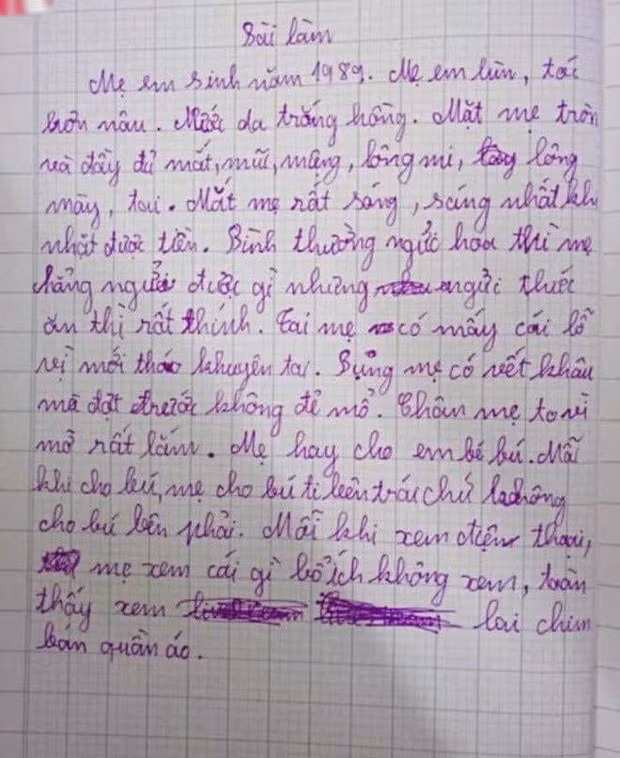 Bài làm
Mẹ em sinh năm 1989. Mẹ em lùn, tóc
hơn nâu. Nước da trắng hồng. Mặt mẹ tròn
và đầy đủ mắt, mũi, miệng, lông mi, lông
mày, tai. Mắt mẹ rất sáng, sáng nhất khi
nhặt được tiền. Bình thường ngửi hoa thì mẹ
chẳng ngửi được gì nhưng ngửi thức
ăn thì rất thính. Tai mẹ có mấy cái lỗ
vị mới tháo khuyên tai. Bụng mẹ có vết khâu
mà đợt trước không đẻ mổ. Chân mẹ to vì
mỡ rất lắm. Mẹ hay cho em bé bú. Mỗi
khi cho bú, mẹ cho bú ti bên trái chứ không
cho bú bên phải. Mỗi khi xem điện thoại,
mẹ xem cái gì bổ ích không xem, toàn
thấy xem lai chim
bán quần áo.